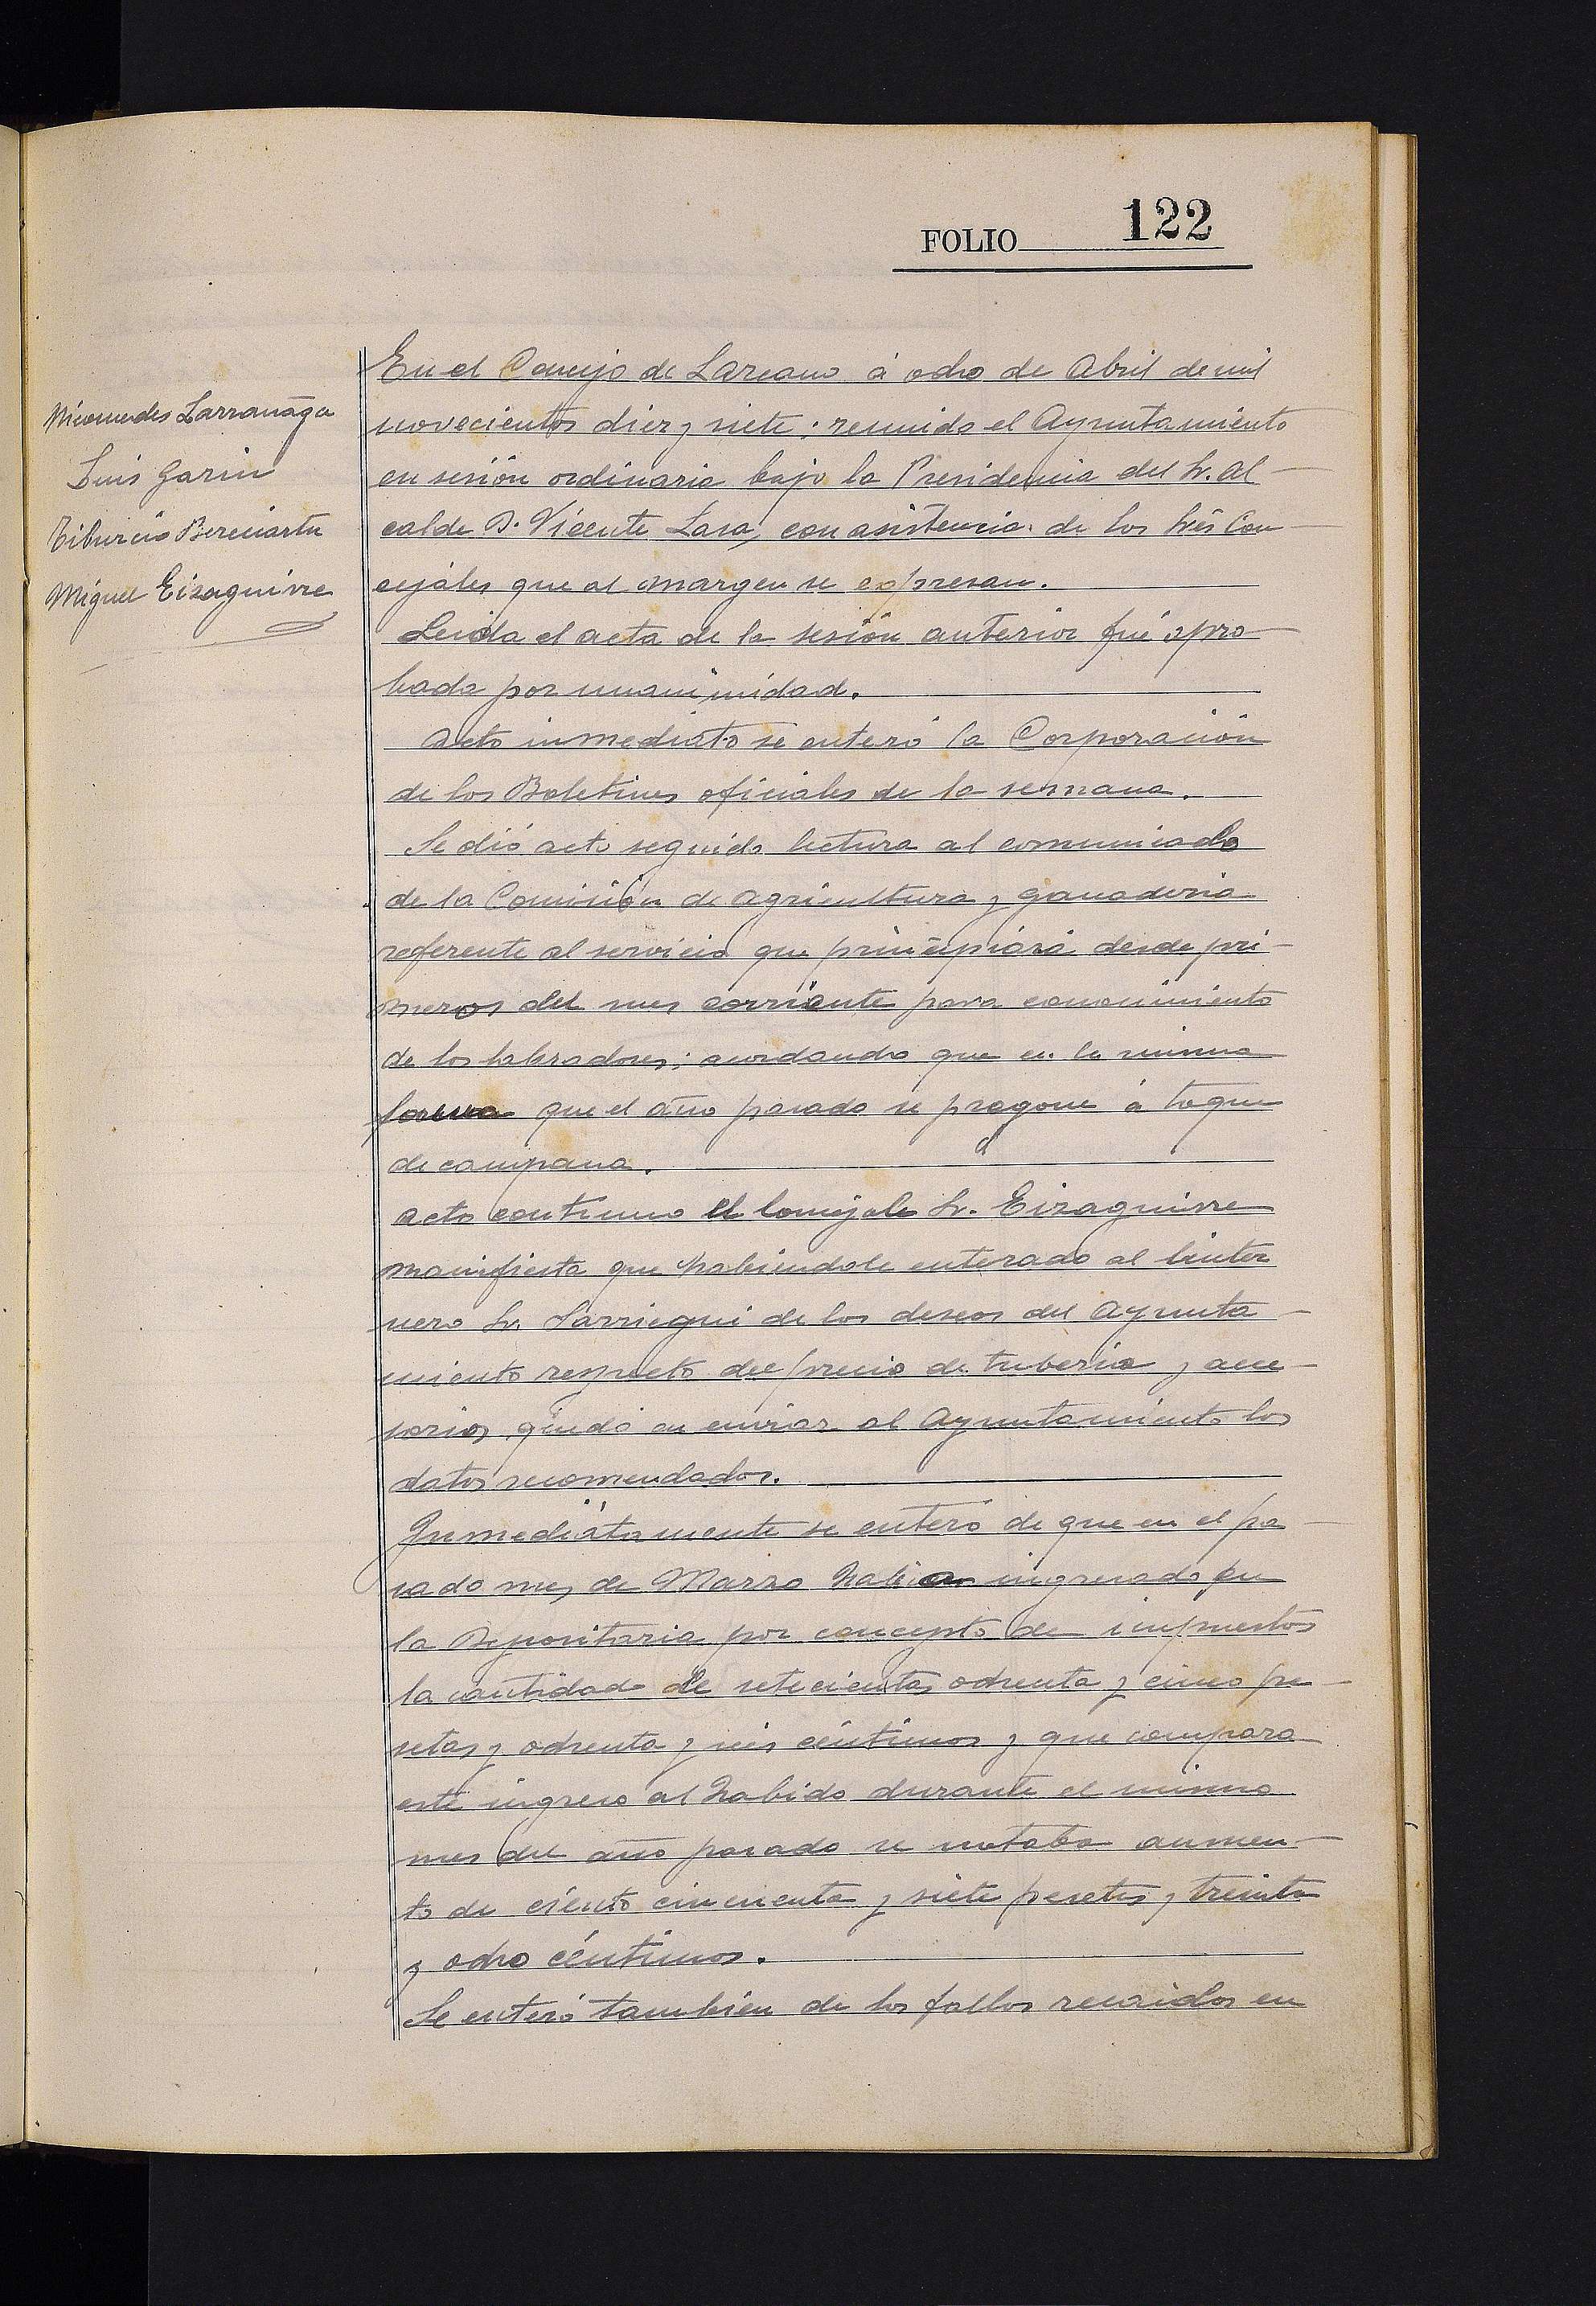 FOLIO 122
Nicomedes Larrañaga
Luis Garin
Tiburcio Bereciartu
Miguel Eizaguirre
En el Concejo de Lazcano á ocho de Abril de mil
novecientos diez y siete; reunido el Ayuntamiento
en sesión ordinaria bajo la Presidencia del Sr. Al
calde D. Vicente Lasa, con asistencia de los Srés Con
cejáles que al margen se expresan.
Leida el acta de la sesión anterior fué apro
bada por unanimidad.
Acto inmediato se enteró la Corporación
de los Boletines oficiales de la semana.
Se dió acto seguido lectura al comunicado
de la Comisión de Agricultura y ganaderia
referente al servicio que principiará desde pri
meros del mes corriente para conocimiento
de los labradores; acordando que en la misma
forma que el año pasado se pregone á toque
de campana.
Acto continuo el Concejal Sr. Eizaguirre
manifiesta que habiendole enterado al linter
nero Sr. Sarriegui de los deseos del Ayunta
miento respecto del precio de tuberia y acce
sorios quedó en enviar al Ayuntamiento los
datos recomendados.
Inmediatamente se enteró de que en el pa
sado mes de Marzo habian ingresado en
la Depositaria por concepto de impuestos
la cantidad de setecientas ochenta y cinco pe
setas y ochenta y seis céntimos y que compara
este ingreso al habido durante el mismo
mes del año pasado se notaba aumen
to de ciento cincuenta y siete pesetas y treinta
y ocho céntimos.
Se enteró tambien de los fallos recaidos en